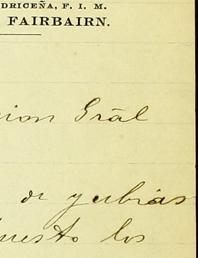 DRICEÑA, F. I. M.
FAIRBAIRN.
cion Grāl
de yubias
uesto los